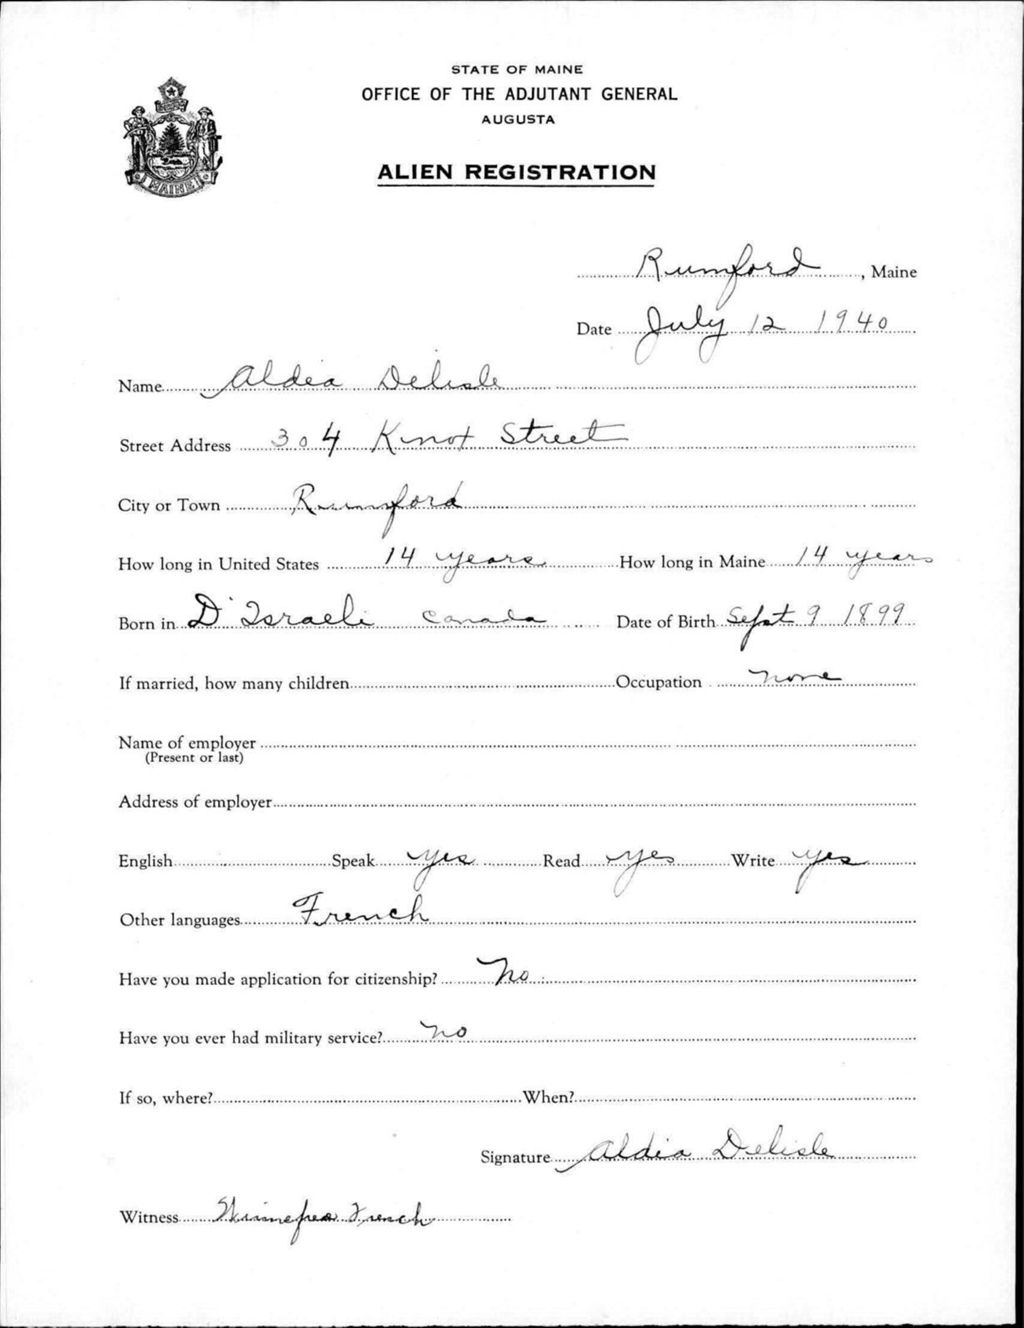 STATE OF MAINE
OFFICE OF THE ADJUTANT GENERAL
AUGUSTA
ALIEN REGISTRATION
MAINE
Rumford, Maine
Date July 12 1940
Name Aldea Delisle
Street Address 304 Knox Street
City or Town Rumford
How long in United States 14 years How long in Maine 14 years
Born in D'Israeli Canada Date of Birth Sept 9 1899
If married, how many children Occupation none
Name of employer
(Present or last)
Address of employer
English Speak yes Read yes Write yes
Other languages French
Have you made application for citizenship? No
Have you ever had military service? no
If so, where? When?
Signature Aldia Delisle
Witness French